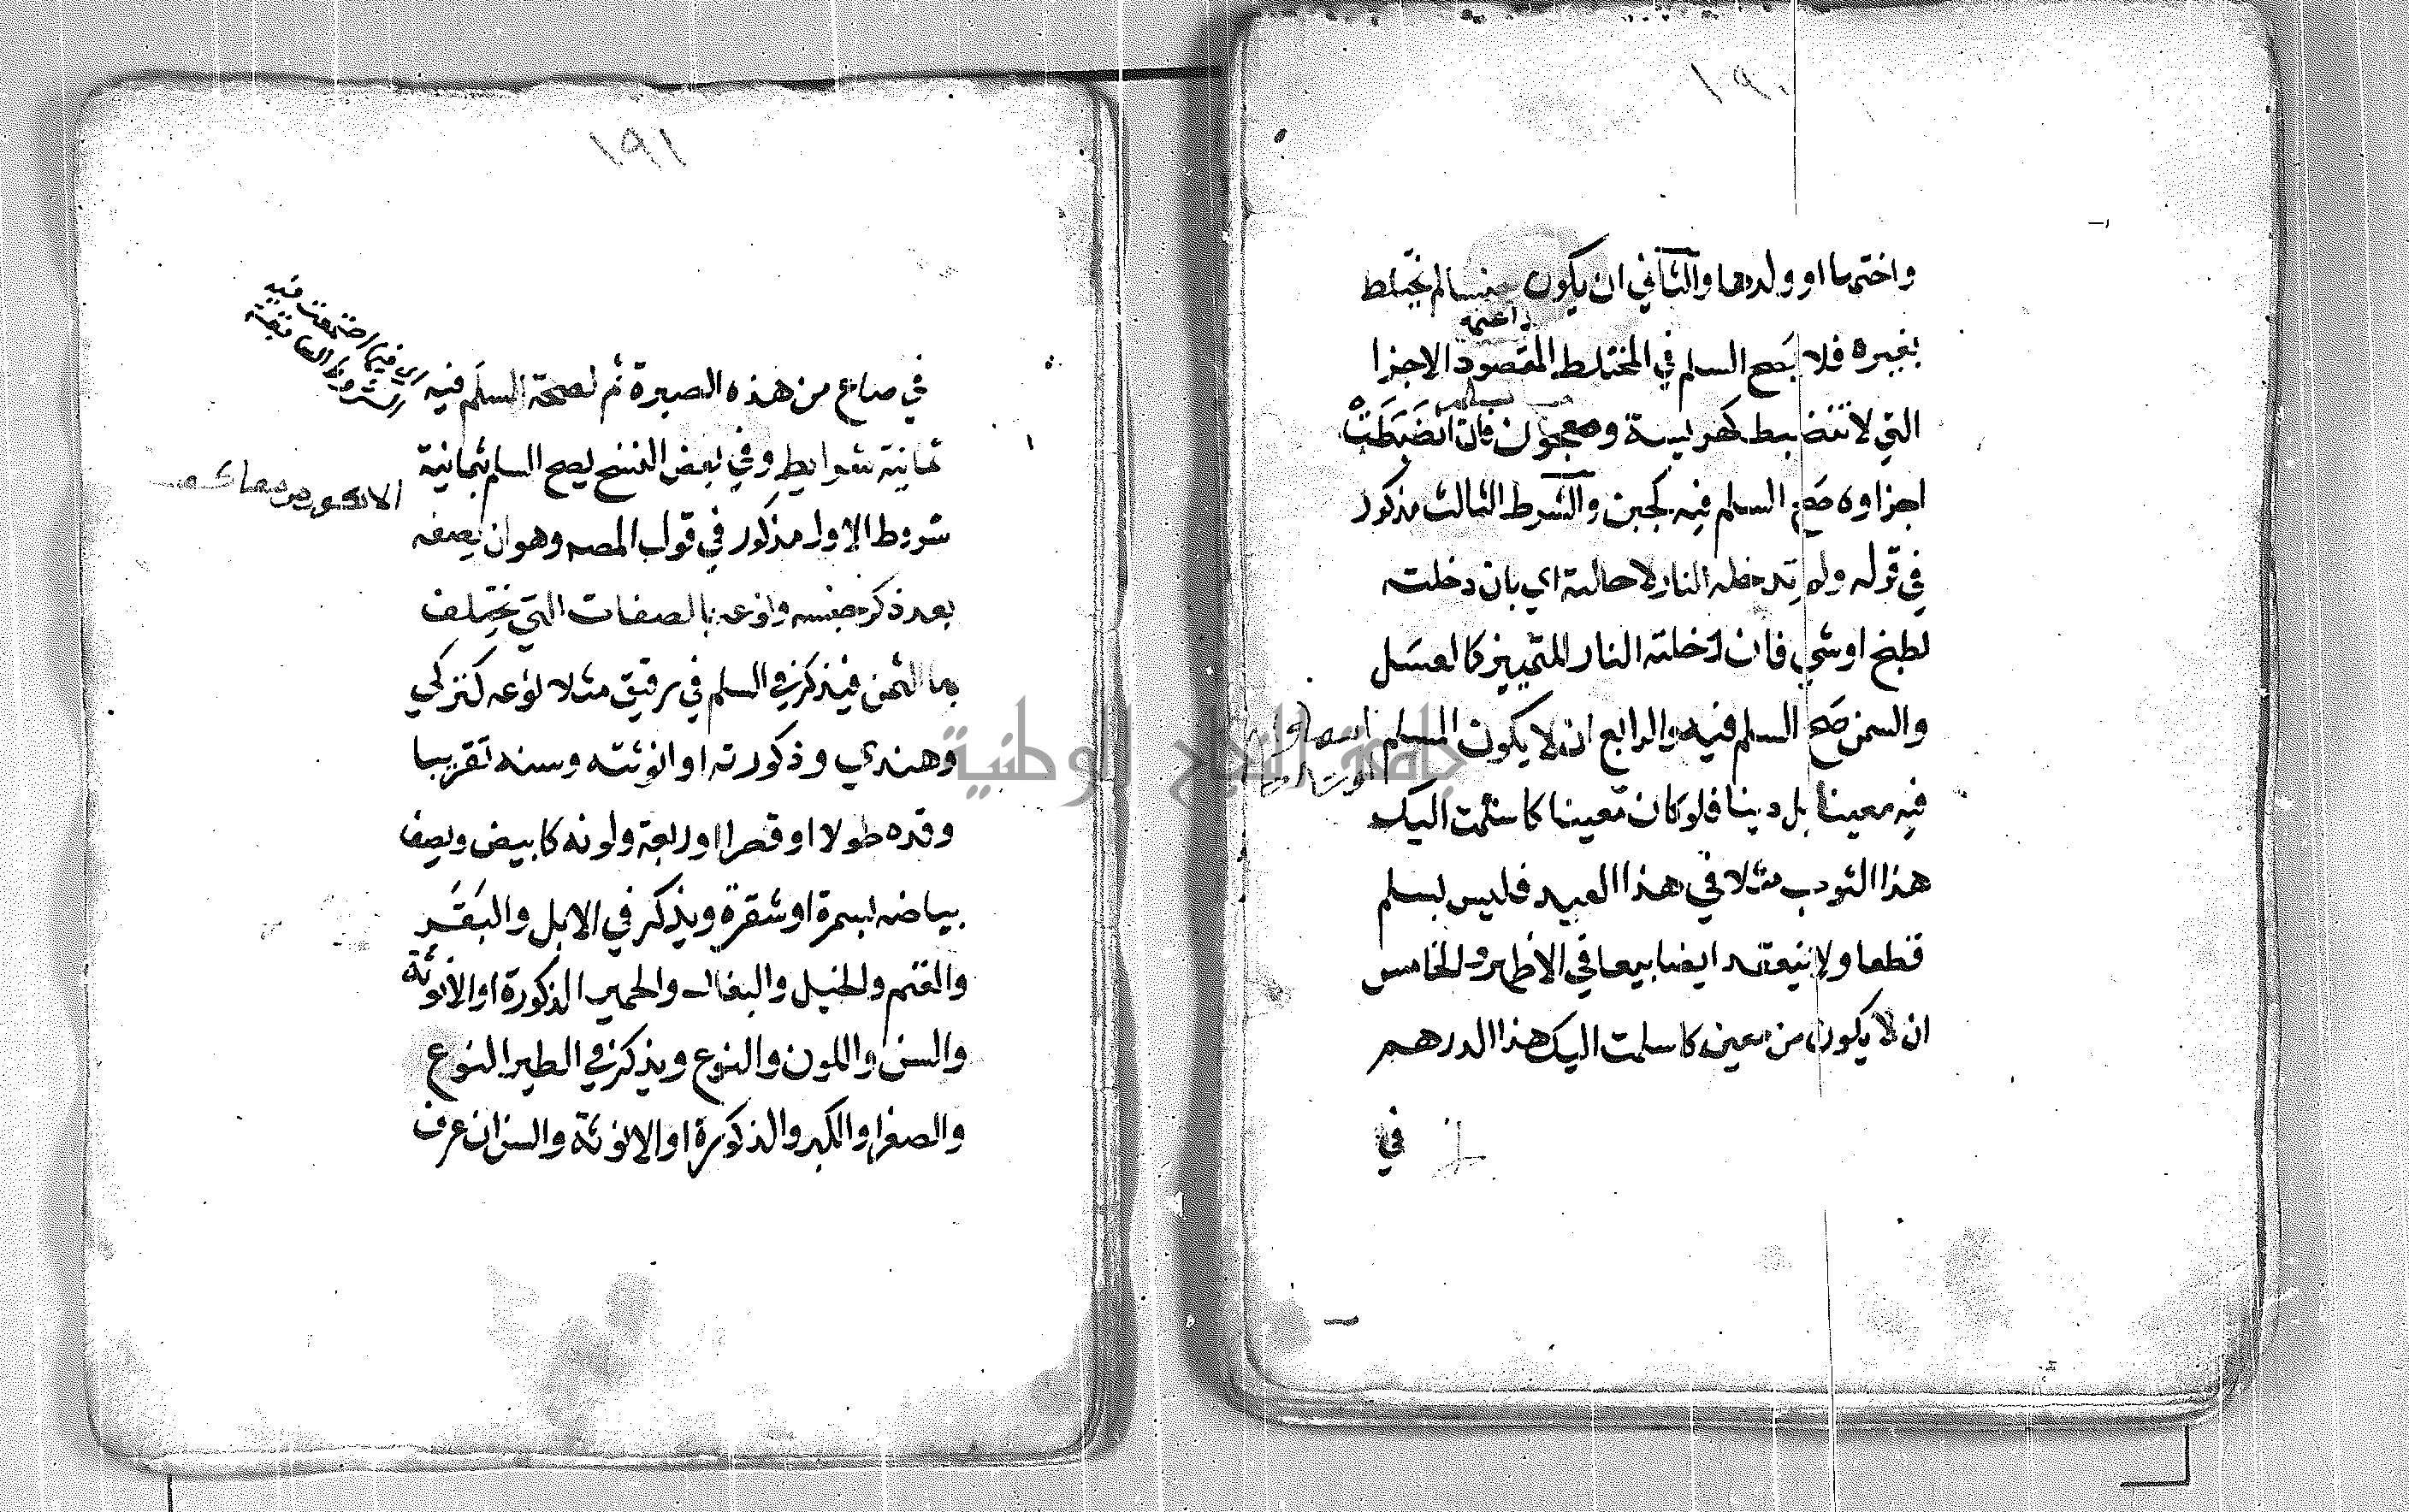 ١٩٠
واختها او ولدها والثاني ان يكون جنسا لم يختلط
بغيره فلا يصح السلم في المختلط المقصود الاجزا
التي لا تنضبط كهريسة ومعجون فان انضبطت
اجزاوه صح السلم فيه كجبن والشرط الثالث مذكور
في قوله ولم تدخله النار لاحالته اي بان دخلته
لطبخ اوشي فان دخلته النار للتمييز كالعسل
والسمن صح السلم فيه والرابع ان لا يكون المسلم
فيه معينا بل دينا فلو كان معينا كاسلمت اليك
هذا الثوب مثلا في هذا العبد فليس بسلم
قطعا ولا ينعقد ايضا بيعا في الاظهر والخامس
ان لا يكون من معين كاسلمت اليك هذا الدرهم
في
جامعة النجاح الوطنية
١٩١
اي فيما اجتمعت فيه
الشروط
في صاع من هذه الصبرة ثم لصحة السلم فيه
ثمانية شرايط وفي بعض النسخ يصح السلم بثمانية
شروط الاول مذكور في قول المصه وهو ان يصفه
بعد ذكر جنسه ونوعه بالصفات التي يختلف
بها الثمن فيذكر في السلم في رقيق مثلا نوعه كتركي
وهندي وذكورته او انوثته وسنه تقريبا
وقده طولا او قصرا او ربعة ولونه كابيض ويصف
بياضه بسمرة او شقرة ويذكر في الابل والبقر
والغنم والخيل والبغال والحمير الذكورة او الانوثة
والسن واللون والنوع ويذكر في الطير النوع
والصغر او الكبر والذكورة او الانوثة والسن ان عرف